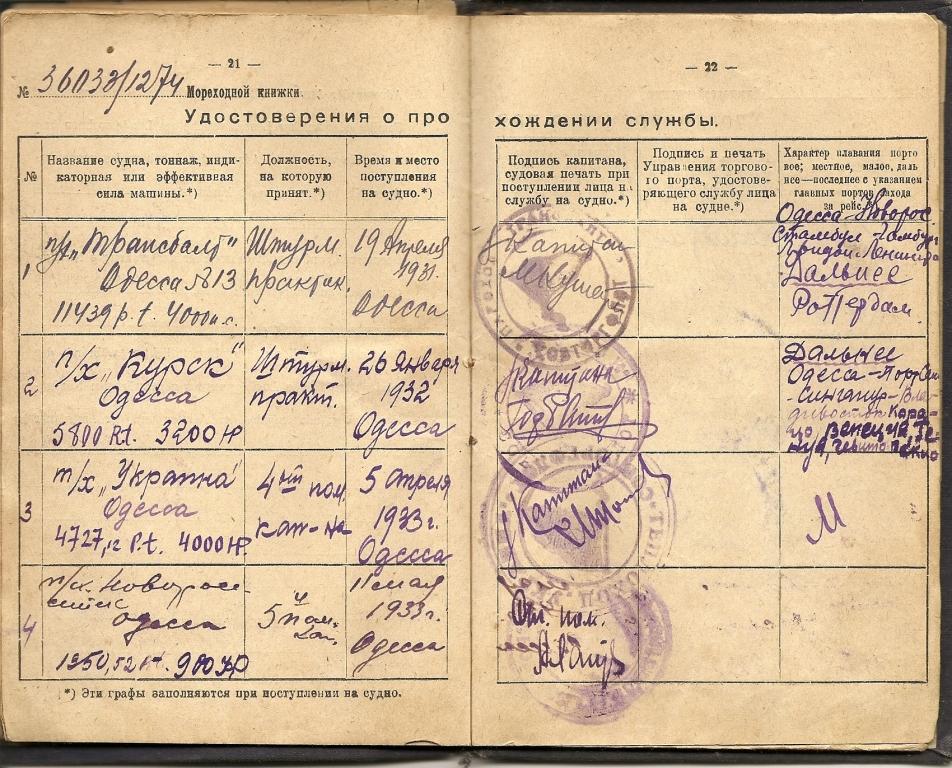 — 21 —
№ 36033/1274 Мореходной книжки
Удостоверения о про
№
Название судна, тоннаж, инди-
каторная или эффективная
сила машины.*)
Должность,
на которую
принят.*)
Время и место
поступления
на судно.*)
1
"Трансбалт"
Одесса №13
11439 р.t. 4000 л.с.
Штурм.
практик.
19 Апреля
1931.
Одесса
2
п/х "Курск"
Одесса
5800 R.t. 3200 HP
Штурм.
практ.
26 Января
1932
Одесса
3
т/х "Украина"
Одесса
4727,12 P.t. 4000 HP.
4ый пом.
кап-на
5 апреля
1933 г.
Одесса
4
п/х. Новорос-
сийск
Одесса
1950,52 900 HP
5й пом.
кап.
11 мая
1933 г.
Одесса
*) Эти графы заполняются при поступлении на судно.
— 22 —
хождении службы.
Подпись капитана,
судовая печать при
поступлении лица на
службу на судно.*)
Подпись и печать
Управления торгово-
го порта, удостове-
ряющего службу лица
на судне.*)
Характер плавания порто
вое; местное, малое, даль
нее—последнее с указанием
главных портов захода
за рейс.
Одесса-Новорос
Стамбул-Гамбург
Ленинград
Дальнее
Роттердам.
Капитан
Дальнее
Одесса-Порт Саи
-Сингапур-Вла-
дивосток
Венеция,
Капитана
М
Капитан
Ст. пом.